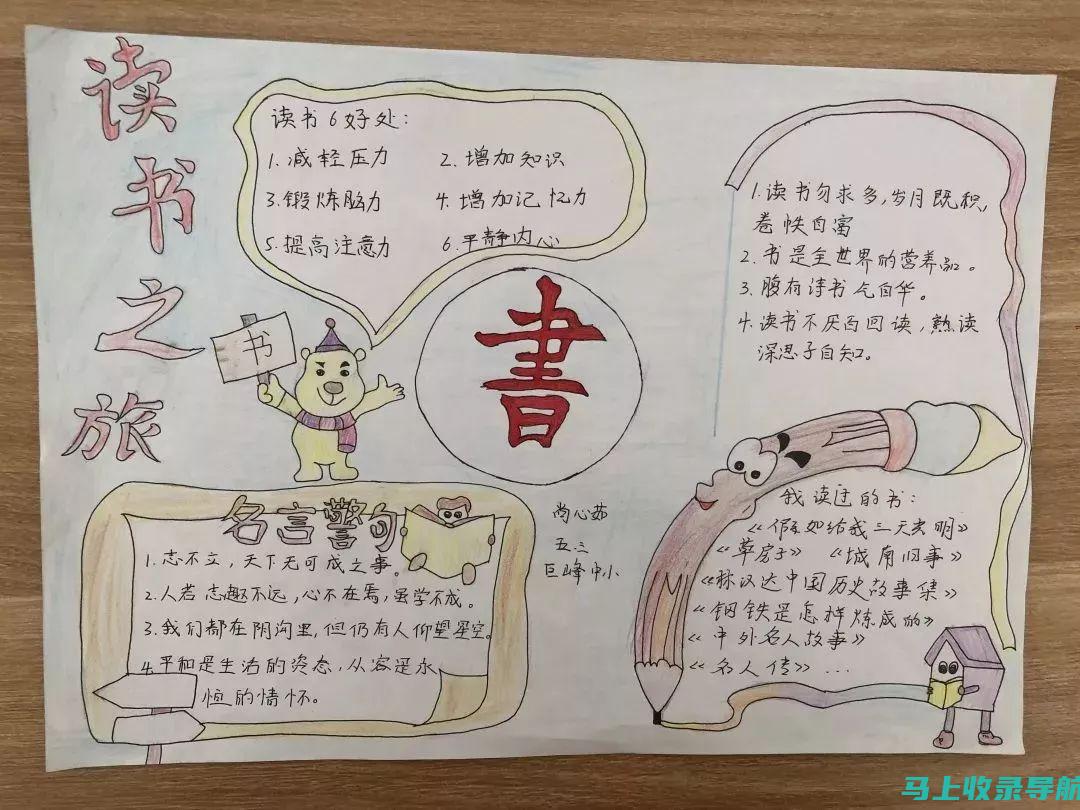 读书之旅
读书6好处：
1.减轻压力 2.增加知识
3.锻炼脑力 4.增加记忆力
5.提高注意力 6.平静内心
书
書
1.读书勿求多，岁月既积，
卷帙自富
2.书是全世界的营养品。
3.腹有诗书气自华。
4.读书不厌百回读，熟读
深思子自知。
名言警句
1.志不立，天下无可成之事。
2.人若志趣不远，心不在焉，虽学不成。
3.我们都在阴沟里，但仍有人仰望星空。
4.平和是生活的姿态，从容是永
恒的情怀。
尚心茹
五三
巨峰中小
我读过的书：
《假如给我三天光明》
《草房子》 《城南旧事》
《林汉达中国历史故事集》
《钢铁是怎样炼成的》
《中外名人故事》
《名人传》...
马上收录导航